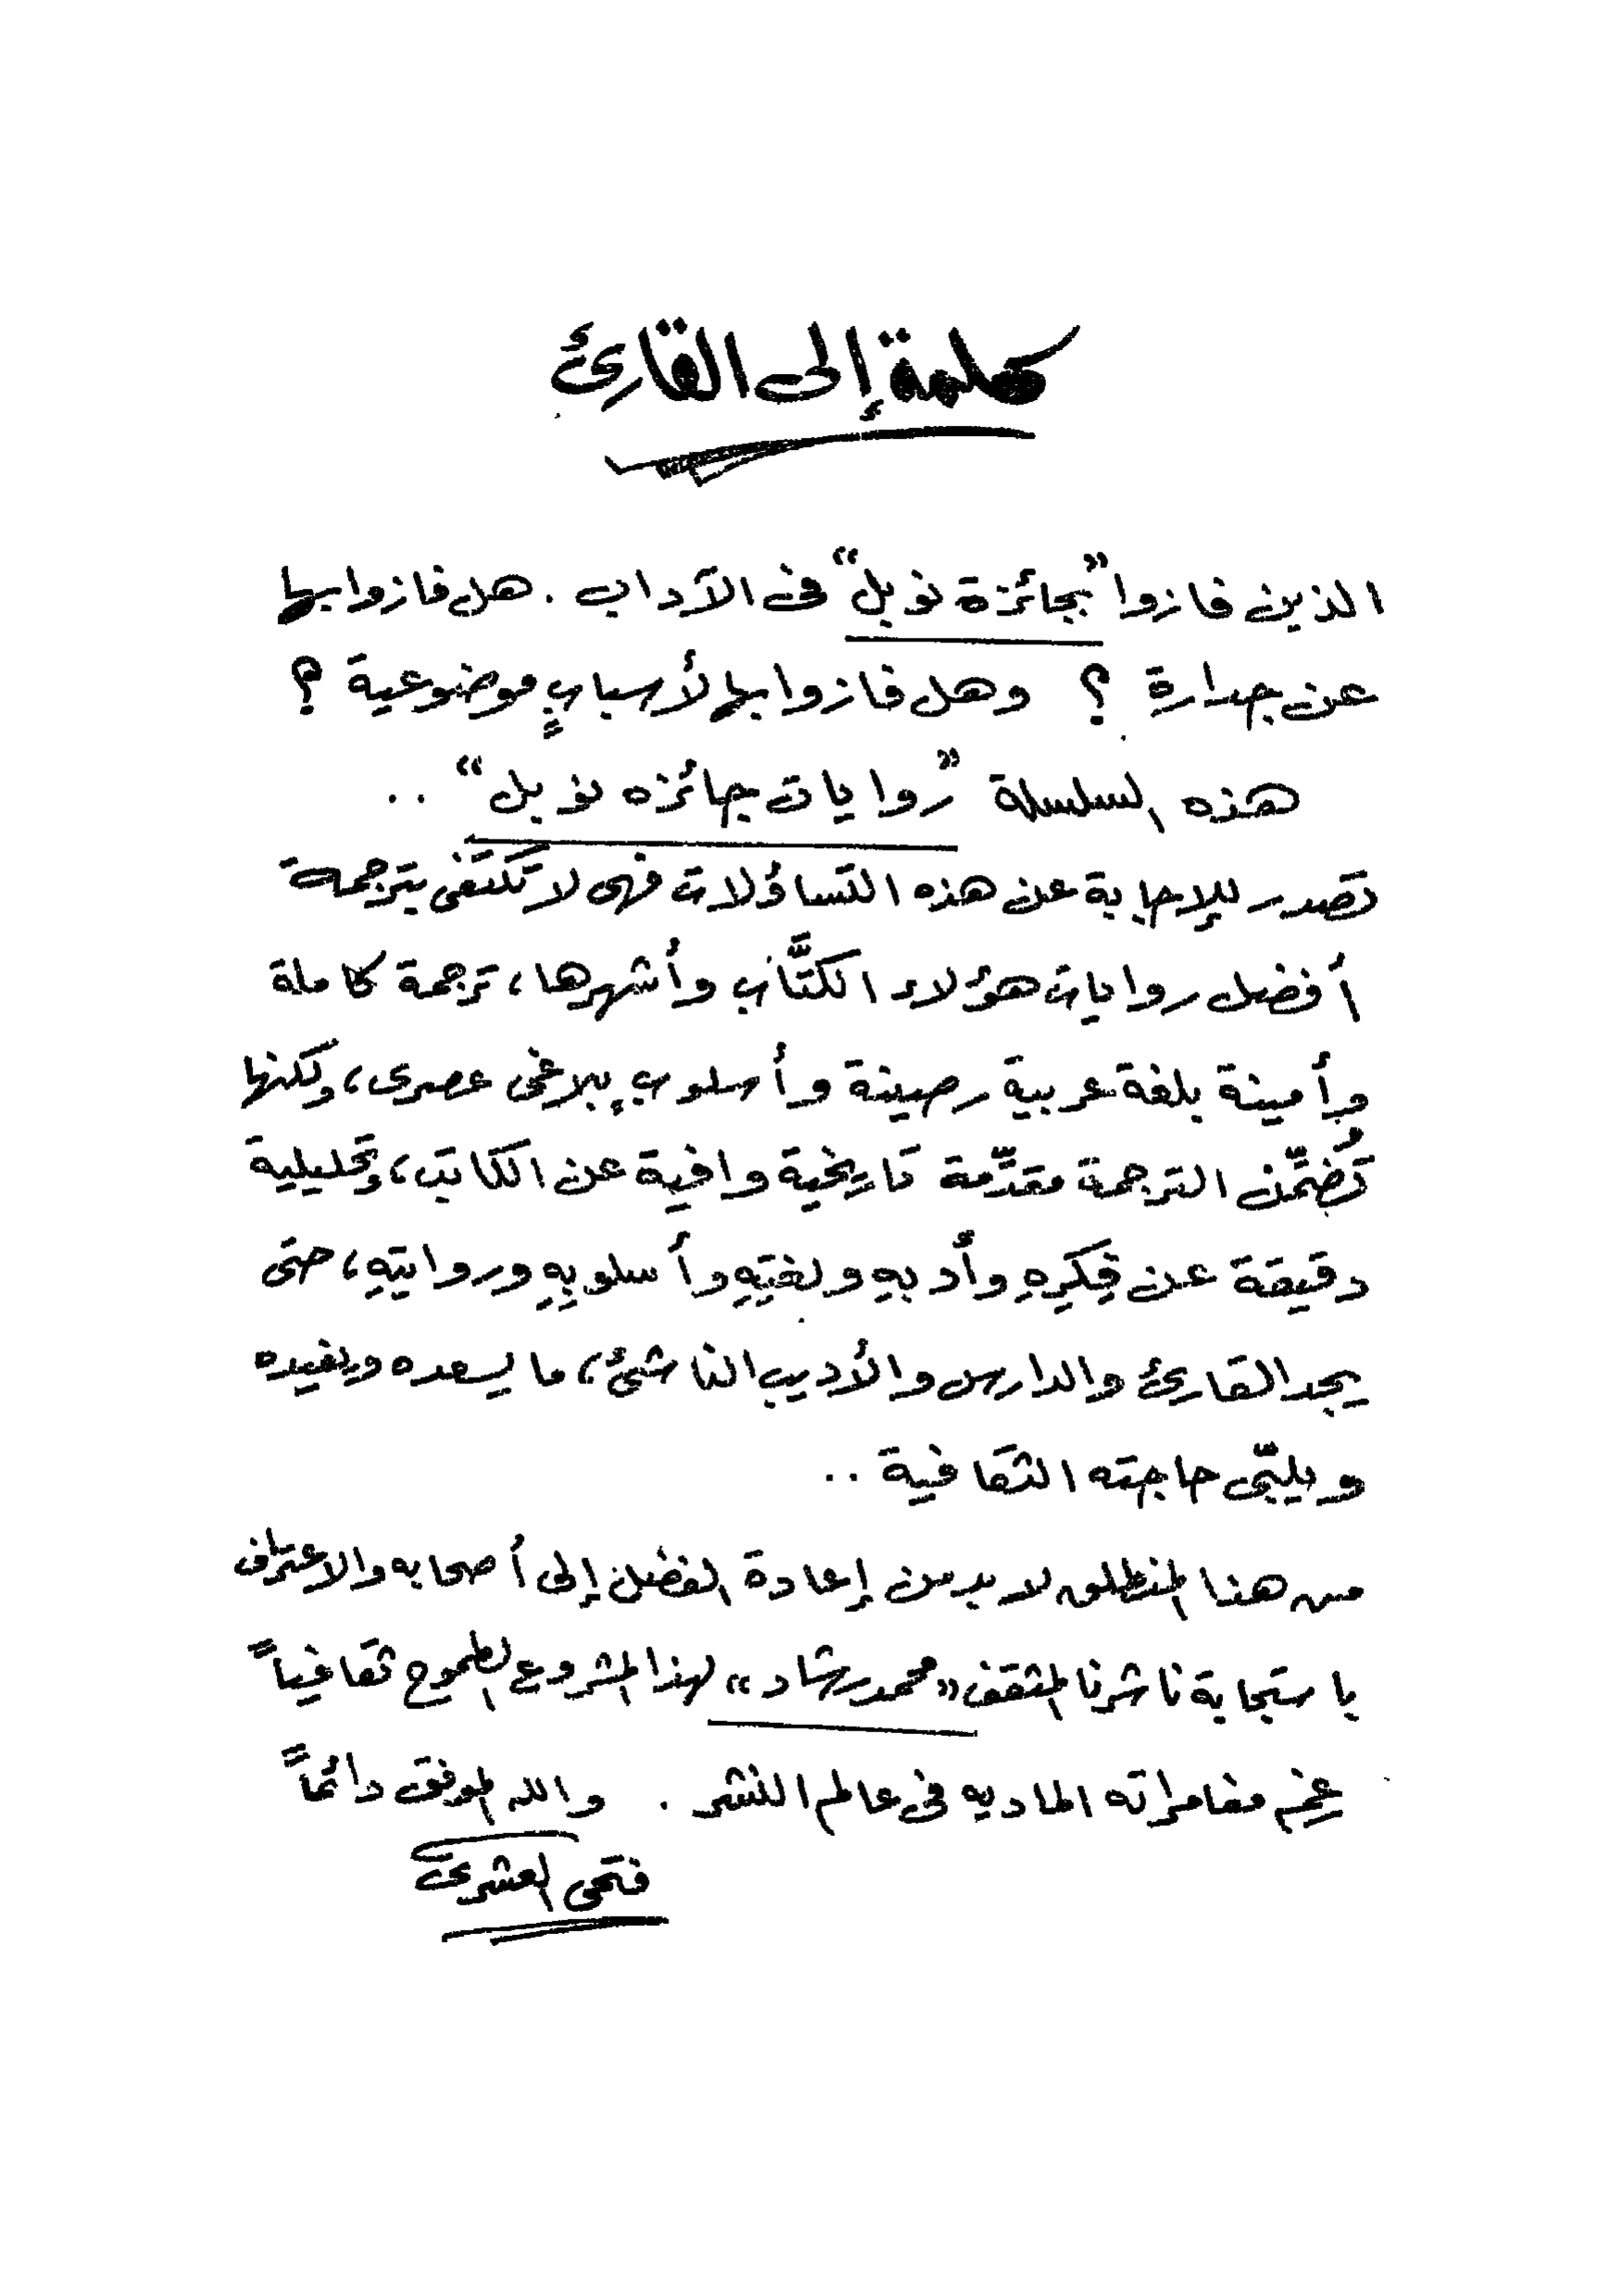 كلمة إلى القارئ
الذين فازوا "بجائزة نوبل" فى الآداب . هل فازوا بها
عن جدارة ؟ وهل فازوا بها لأسبابٍ موضوعية ؟
هذه السلسلة "روايات جائزه نوبل" ..
تصدر للإجابة عن هذه التساؤلات فهى لا تكتفى بترجمة
أفضل روايات هؤلاء الكتَّاب وأشهرها، ترجمة كاملة
وأمينة بلغة عربية رصينة وأسلوبٍ بلاغى عصرى، ولكنها
تُضمِّن الترجمة مقدّمة تاريخية وافية عن الكاتب، وتحليلية
دقيقة عن فِكرِهِ وأدبهِ ولغتِهِ وأسلوبِهِ وروايتِهِ، حتى
يجد القارئ والدارس والأديب الناشئ، ما يسعده ويفيده
ويلبّى حاجته الثقافية ..
من هذا المنطلق لابد من إعادة الفضل إلى أصحابه والاعتراف
باستجابة ناشرنا المثقف «محمد رشاد» لهذا المشروع الطموح ثقافياً
مغامراته الماديه فى عالم النشر . والله الموفق دائماً
فتحى العشرى